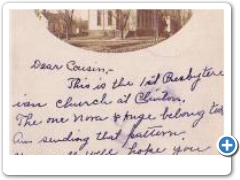 Dear Cousin,-
This is the 1st Presbyter
ian Church at Clinton.
The one Nora & Inge belong to,
Am sending that pattern.
hope you